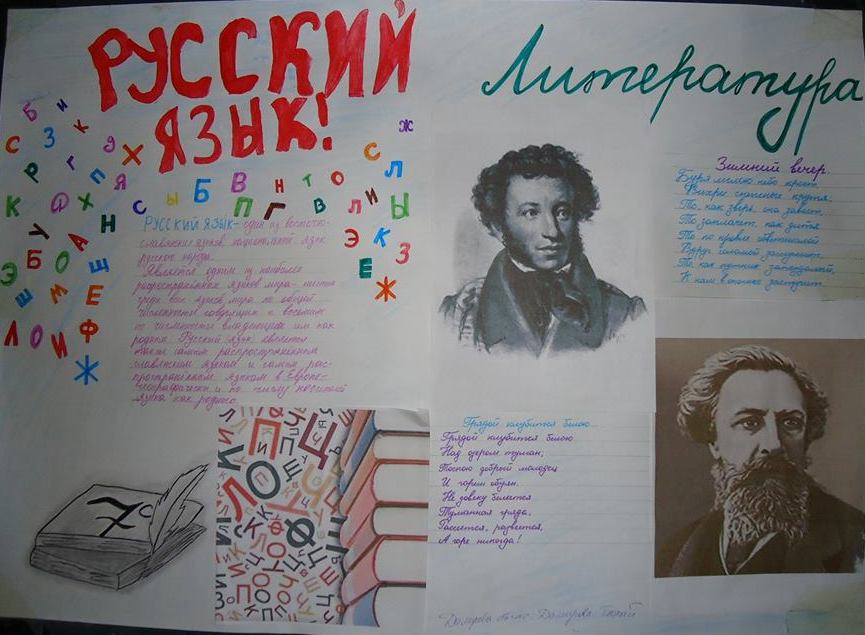 РУССКИЙ
ЯЗЫК!
Литература
РУССКИЙ ЯЗЫК - один из восточно-
славянских языков, национальный язык
русского народа.
Является одним из наиболее
распространённых языков мира - шестым
среди всех языков мира по общей
численности говорящих и восьмым
по численности владеющих им как
родным. Русский язык является
также самым распространённым
славянским языком и самым рас-
пространённым языком в Европе-
географически и по числу носителей
языка как родного.
Зимний вечер.
Буря мглою небо кроет,
Вихри снежные крутя:
То, как зверь, она завоет,
То заплачет, как дитя
То по кровле обветшалой
Вдруг соломой зашумит,
То, как путник запоздалый,
К нам в окошко застучит.
Грядой клубится белою...
Грядой клубится белою
Над озером туман;
Тоскою добрый молодец
И горем обуян.
Не довеку белеется
Туманная гряда,
Рассеется, развеется,
А горе никогда!